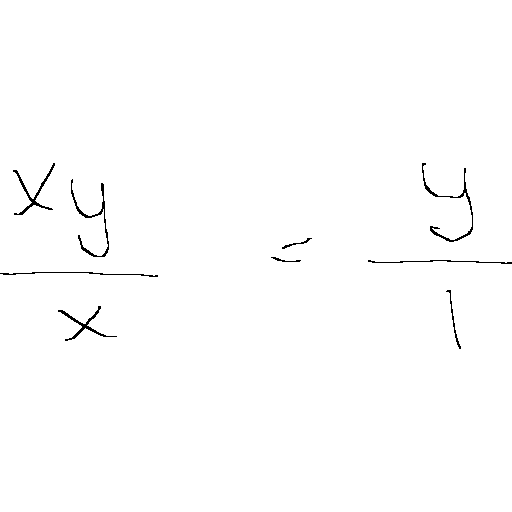 \frac{xy}{x} = \frac{y}{1}